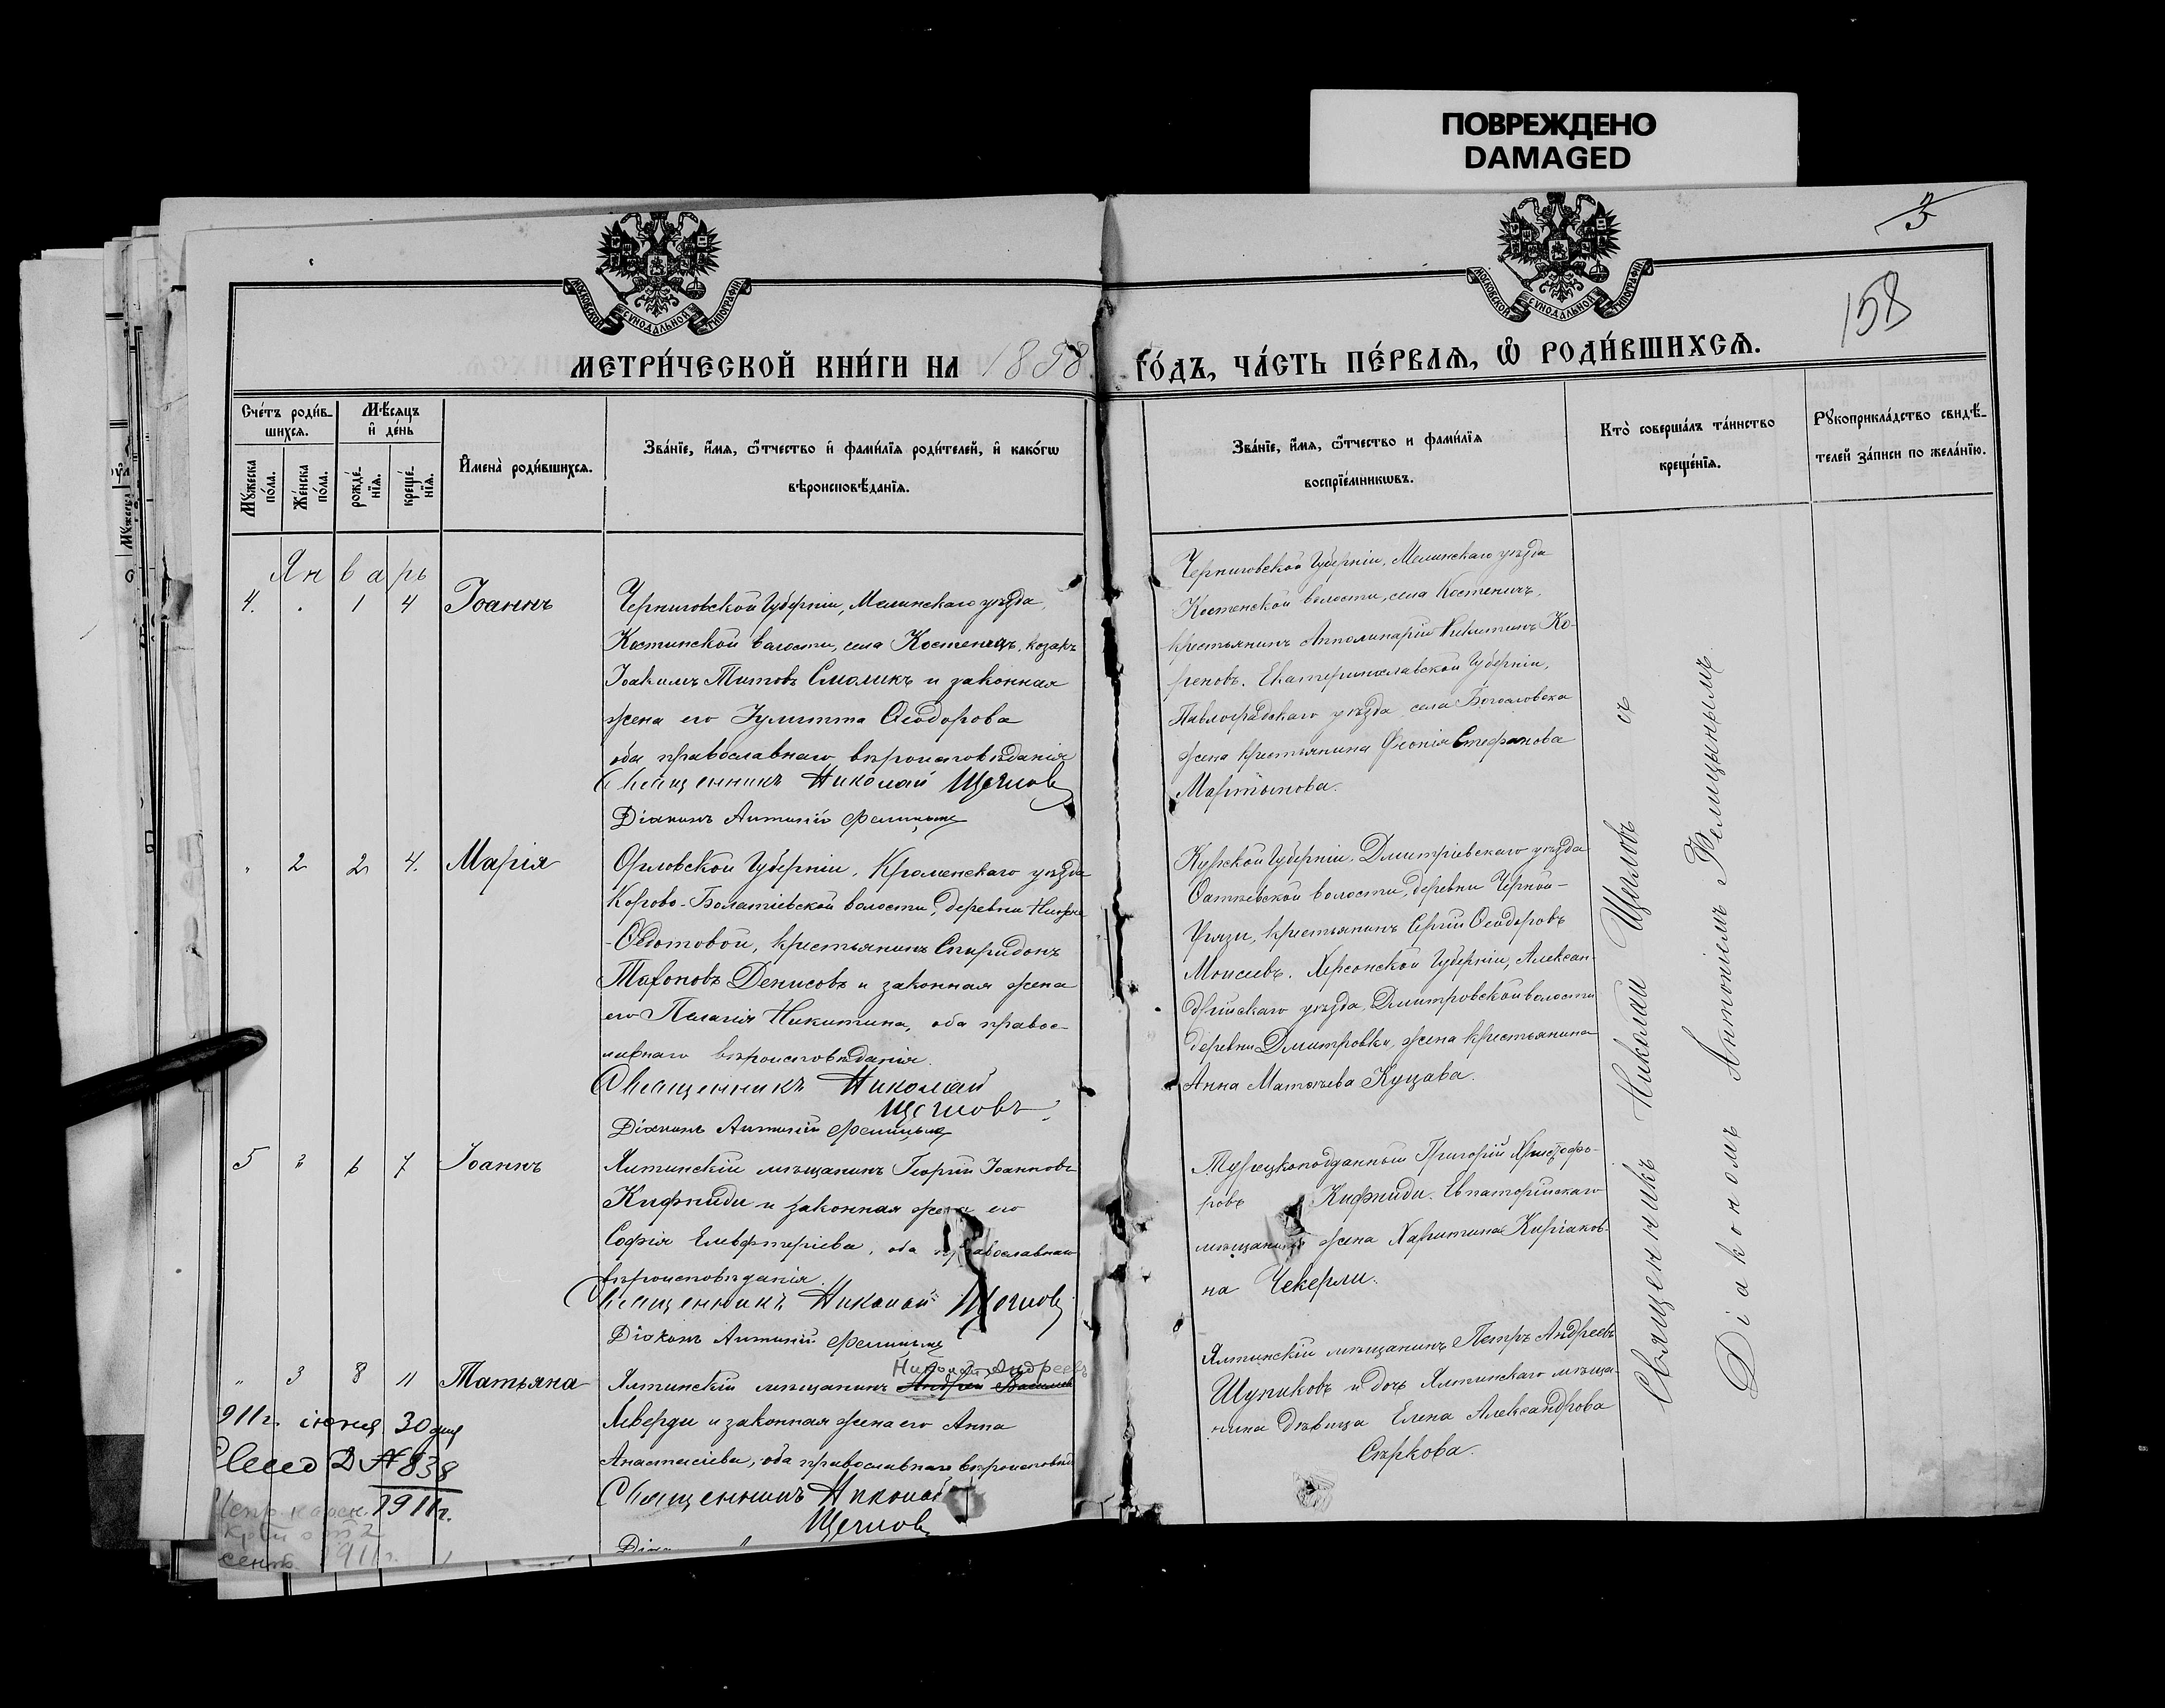 ПОВРЕЖДЕНО
DAMAGED
3
158
МОСКОВСКОЙ СѴНОДАЛЬНОЙ ТИПОГРАФІИ
МОСКОВСКОЙ СѴНОДАЛЬНОЙ ТИПОГРАФІИ
МЕТРИ́ЧЕСКОЙ КНИ́ГИ НА 1898
ГО́ДЪ, ЧА́СТЬ ПЕ́РВАѦ, Ѡ҆ РОДИ́ВШИХСѦ.
Сче́тъ роди́в-
шихсѧ.
Мꙋ́жеска
по́ла.
Же́нска
по́ла.
Мѣ́сѧцъ
и҆ де́нь
рожде́-
нїѧ.
креще́-
нїѧ.
И҆мена̀ роди́вшихсѧ.
Зва́нїе, и҆́мѧ, ѻ҆́тчество и҆ фами́лїѧ роди́телей, и҆ како́гѡ
вѣроисповѣ́данїѧ.
Зва́нїе, и҆́мѧ, ѻ҆́тчество и фами́лїѧ
воспрїе́мникѡвъ.
Кто̀ соверша́лъ та́инство
креще́нїѧ.
Рꙋкоприкла́дство свидѣ́-
телей за́писи по жела́нїю.
Январь
4. . 1 4 Іоаннъ
Черниговской Губерніи, Мглинскаго уѣзда,
волости, села козакъ
Іоакимъ Титовъ Смоликъ и законная
жена его Іулитта Ѳеодорова
оба православнаго вѣроисповѣданія
Священникъ Николай Щегловъ
Діаконъ Антоній Фелицынъ
Черниговской Губерніи, Мглинскаго уѣзда
Костенской волости, села Костеничъ,
крестьянинъ Апполинарій Никитинъ Ко-
реновъ. Екатеринославской Губерніи,
Павлоградскаго уѣзда, села Богословка
жена крестьянина Стефанова
Мартынова.
" 2 2 4. Марія
Орловской Губерніи, Кроменскаго уѣзда
Корово-Болотіевской волости, деревни
-Ѳедотовой, крестьянинъ Спиридонъ
Денисовъ и законная жена
его Пелагія Никитина, оба правос-
лавнаго вѣроисповѣданія.
Священникъ Николай
Щегловъ
Діаконъ Антоній Фелицынъ
Курской Губерніи, Дмитріевскаго уѣзда
волости, деревни Черной-
Грязи, крестьянинъ Сергій Ѳеодоровъ
Моисеевъ. Херсонской Губерніи, Александ-
рійскаго уѣзда, Дмитровской волости
деревни Дмитровки, жена крестьянина
Анна Матвѣева Куцава.
5 " 6 7 Іоаннъ
Ялтинскій мѣщанинъ Георгій Іоанновъ
Кифниди и законная жена его
Софія Елевферіева, оба православнаго
вѣроисповѣданія.
Священникъ Николай Щегловъ
Діаконъ Антоній Фелицынъ
Турецкоподданный Григорій Христофо-
ровъ Кифниди. Евпаторійскаго
мѣщанина жена Харитина Киріаков-
на Чекерли.
" 3 8 11 Татьяна
Николай Андреевъ
Ялтинскій мѣщанинъ Андрей
Аверди и законная жена его Анна
Анастасіева, оба православнаго вѣроисповѣд.
Священникъ Николай
Щегловъ
Ялтинскій мѣщанинъ Петръ Андреевъ
Шупиковъ и дочь Ялтинскаго мѣща-
нина дѣвица Елена Александрова
Сѣркова.
911г. іюня 30 дня
№838
1911г.
911г.
Священникъ Николай Щегловъ съ
Діакономъ Антоніемъ Фелицынымъ.